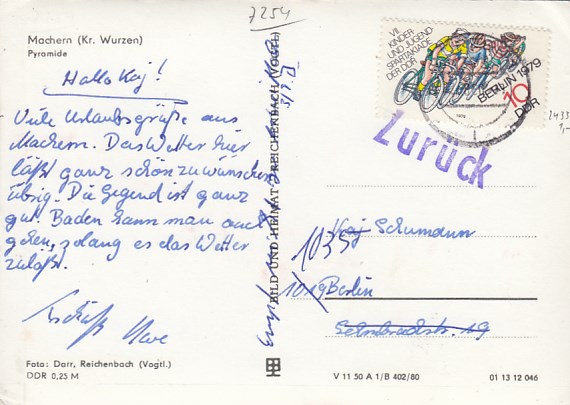 7254
Machern (Kr. Wurzen)
Pyramide
Hallo Kaj!
Viele Urlaubsgrüße aus
Machern. Das Wetter hier
läßt ganz schön zu wünschen
übrig. Die Gegend ist ganz
gut. Baden kann man auch
gehen, solang es das Wetter
zuläßt.
Tschüß Uwe
Foto: Darr, Reichenbach (Vogtl.)
DDR 0,25 M
BILD UND HEIMAT REICHENBACH (VOGTL)
VII.
KINDER
UND JUGEND
SPARTAKIADE
DER DDR
BERLIN 1979
10
DDR
1979
2433
1,-
Zurück
Kaj Schumann
1035
1019 Berlin
V 11 50 A 1/B 402/80
01 13 12 046